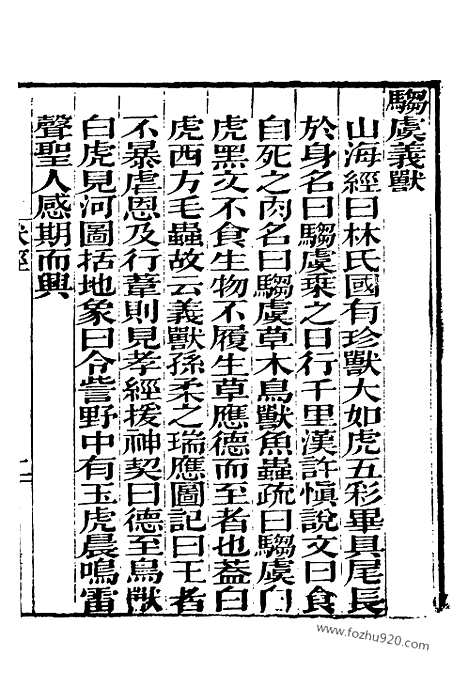 騶虞義獸
山海經曰林氏國有珍獸大如虎五彩畢具尾長
於身名曰騶虞乗之日行千里漢許愼說文曰食
自死之肉名曰騶虞草木鳥獸魚蟲疏曰騶虞白
虎黑文不食生物不履生草應德而至者也葢白
虎西方毛蟲故云義獸孫柔之瑞應圖記曰王者
不暴虐恩及行葦則見孝經援神契曰德至鳥獸
白虎見河圖括地象曰令訾野中有玉虎晨鳴雷
聲聖人感期而興
獸經
www.fozhu920.com